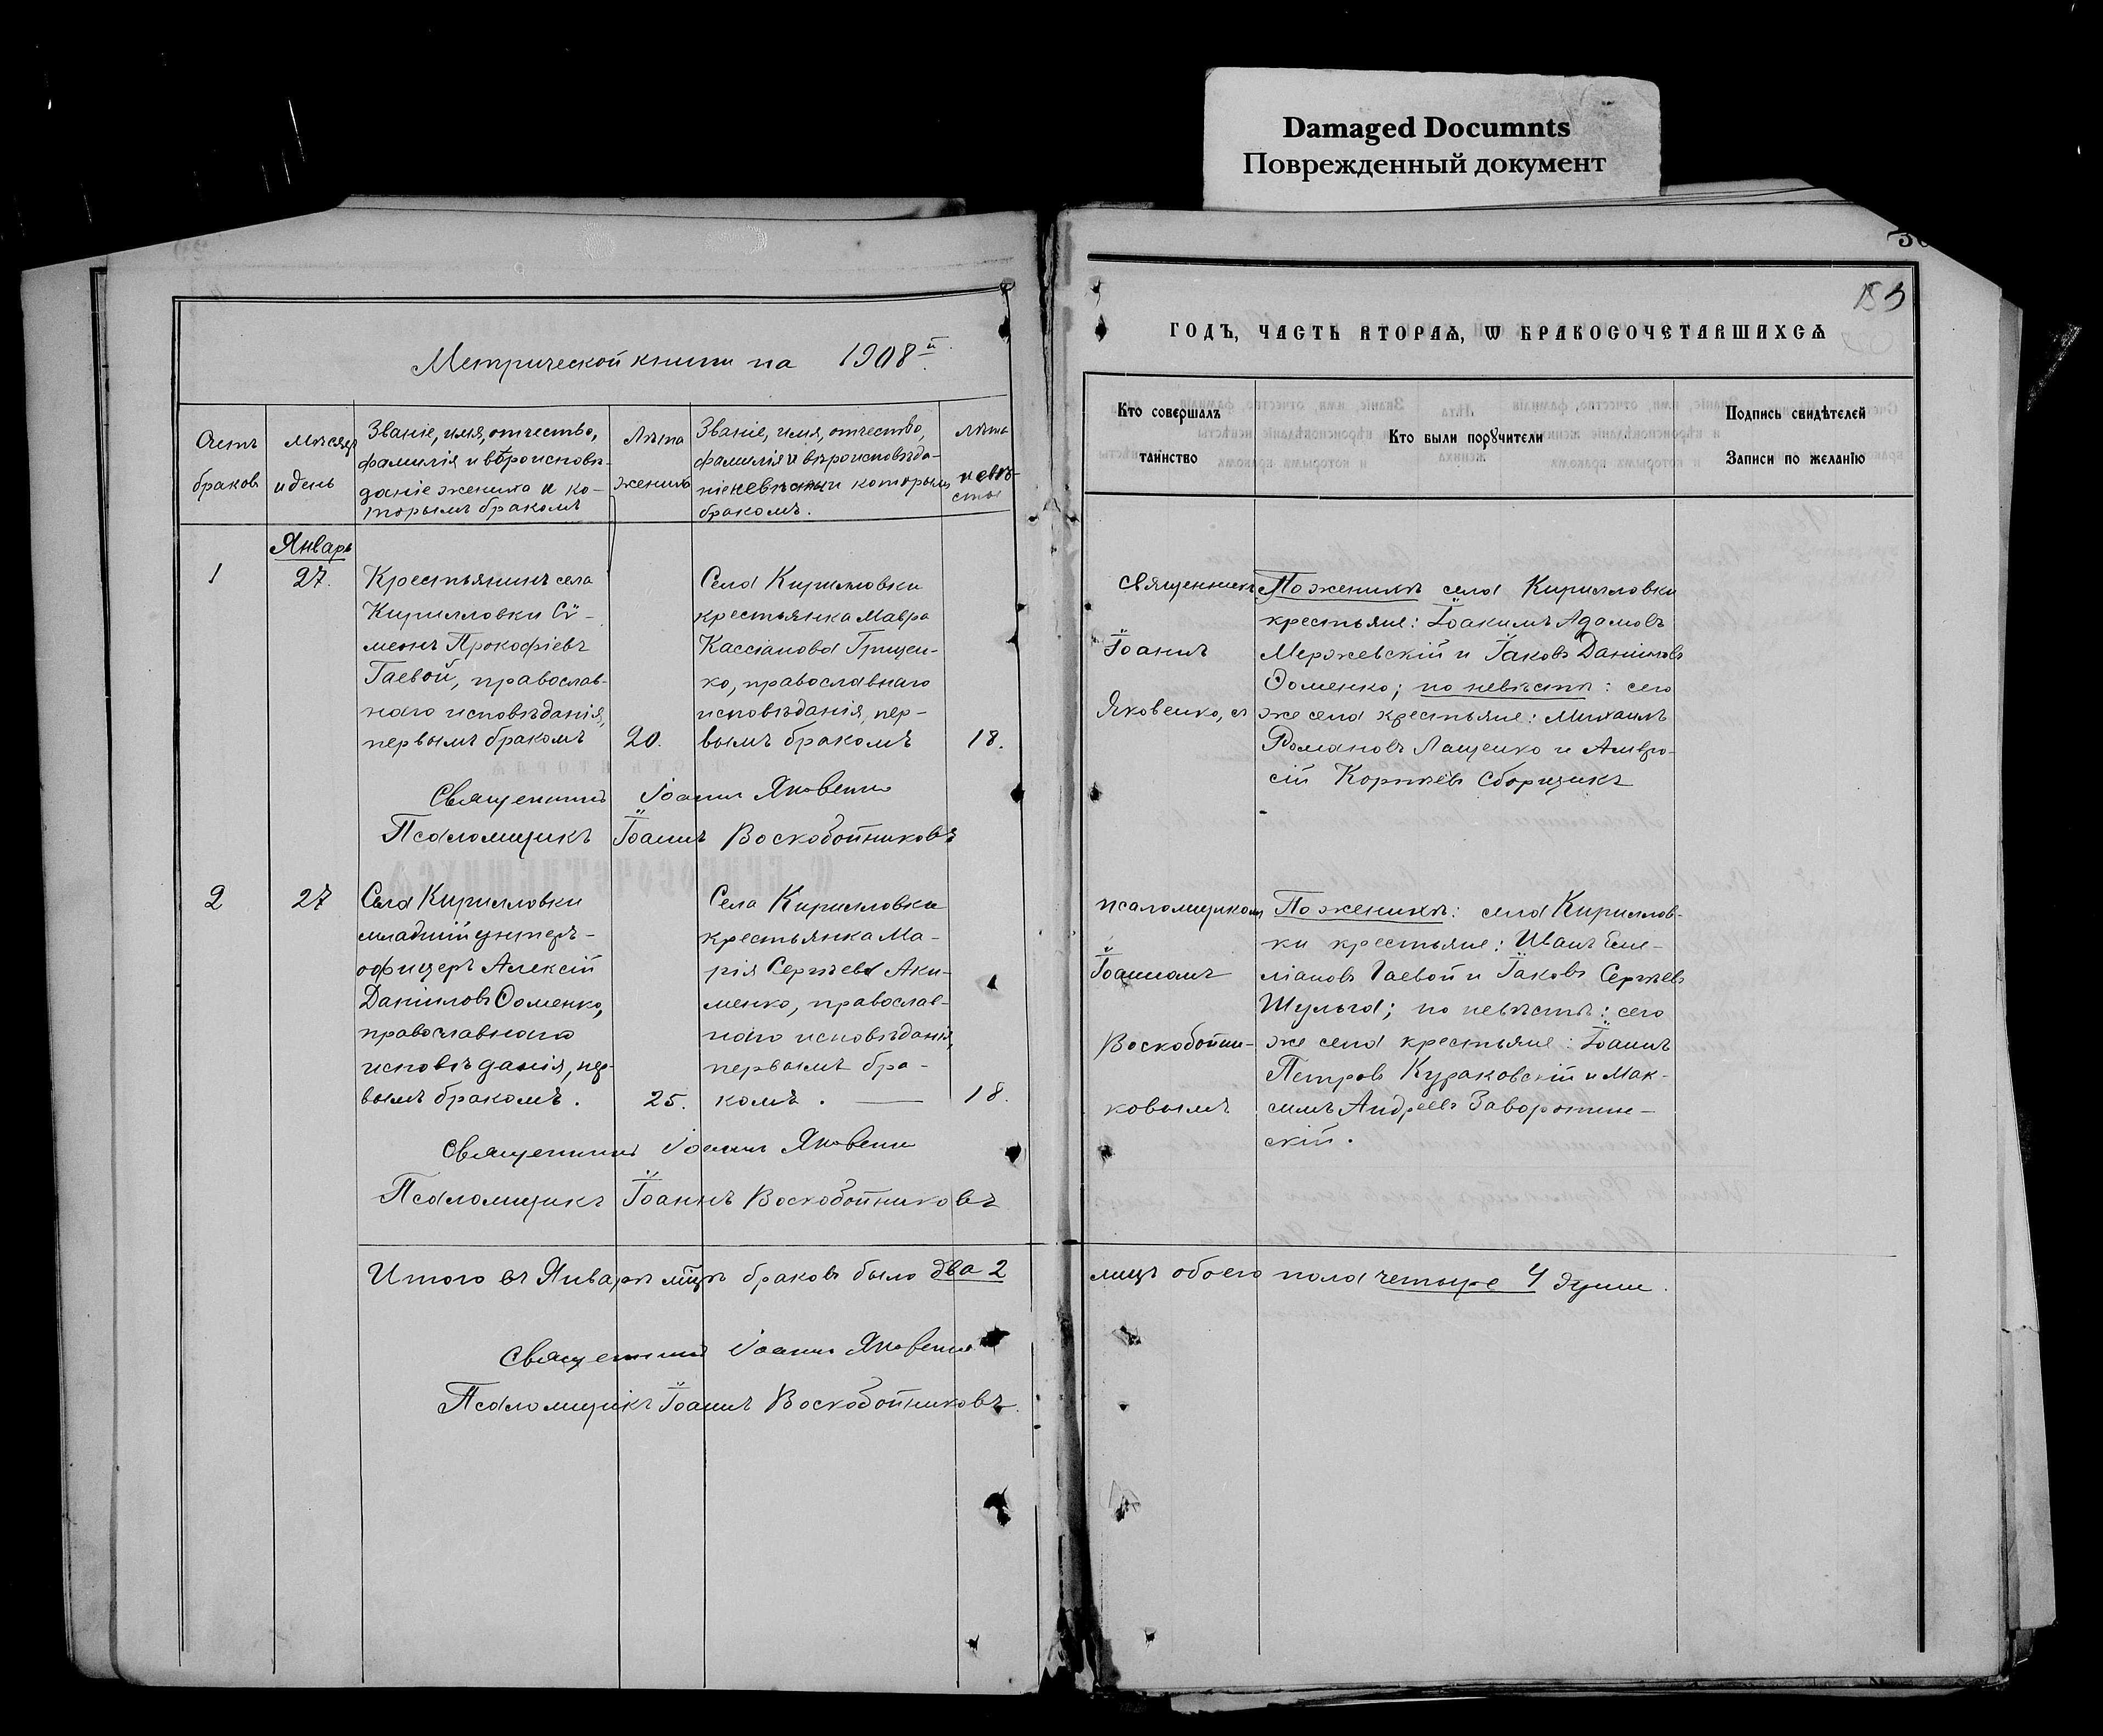 Damaged Documnts
Поврежденный документ
Метрической книги на 1908й.
Счетъ браковъ
Мѣсяцъ и день
Званіе, имя, отчество,
фамилія и вѣроисповѣ-
даніе жениха и ко-
торымъ бракомъ
Лѣта жениха
Званіе, имя, отчество,
фамилія и вѣроисповѣда-
ніе невѣсты и которымъ
бракомъ.
Лѣта невѣ-
сты
Январь
1
27.
Крестьянинъ села
Кирилловки Сѵ-
меонъ Прокофіевъ
Гаевой, православ-
наго исповѣданія,
первымъ бракомъ
20.
Села Кирилловки
крестьянка Мавра
Кассіанова Грищен-
ко, православнаго
исповѣданія, пер-
вымъ бракомъ
18.
Священникъ Іоаннъ Яковенко
Псаломщикъ Іоаннъ Воскобойниковъ
2
27
Села Кирилловки
младшій унтеръ-
офицеръ Алексій
Даніиловъ Ѳоменко,
православнаго
исповѣданія, пер-
вымъ бракомъ.
25.
Села Кирилловки
крестьянка Ма-
рія Сергѣева Аки-
менко, православ-
наго исповѣданія,
первымъ бра-
комъ.
18.
Священникъ Іоаннъ Яковенко
Псаломщикъ Іоаннъ Воскобойниковъ
Итого въ Январѣ мцѣ браковъ было два 2
Священникъ Іоаннъ Яковенко
Псаломщикъ Іоаннъ Воскобойниковъ.
ГОДЪ, ЧАСТЬ ВТОРАѦ, Ѡ БРАКОСОЧЕТАВШИХСѦ
Кто совершалъ
таинство
Кто были порꙋчители
Подпись свидѣтелей
Записи по желанію
священникъ
Іоаннъ
Яковенко, съ
По женихѣ села Кирилловки
крестьяне: Іоакимъ Адамовъ
Мержевскій и Іаковъ Даніиловъ
Ѳоменко; по невѣстѣ: сего
же села крестьяне: Михаилъ
Романовъ Лащенко и Амвро-
сій Корнѣевъ Сборщикъ
псаломщикомъ
Іоанномъ
Воскобойни-
ковымъ
По женихѣ: села Кириллов-
ки крестьяне: Иванъ Еме-
ліановъ Гаевой и Іаковъ Сергѣевъ
Шульга; по невѣстѣ: сего
же села крестьяне: Іоаннъ
Петровъ Кураковскій и Мак-
симъ Андреевъ Заворотин-
скій.
лицъ обоего пола четыре 4 души.